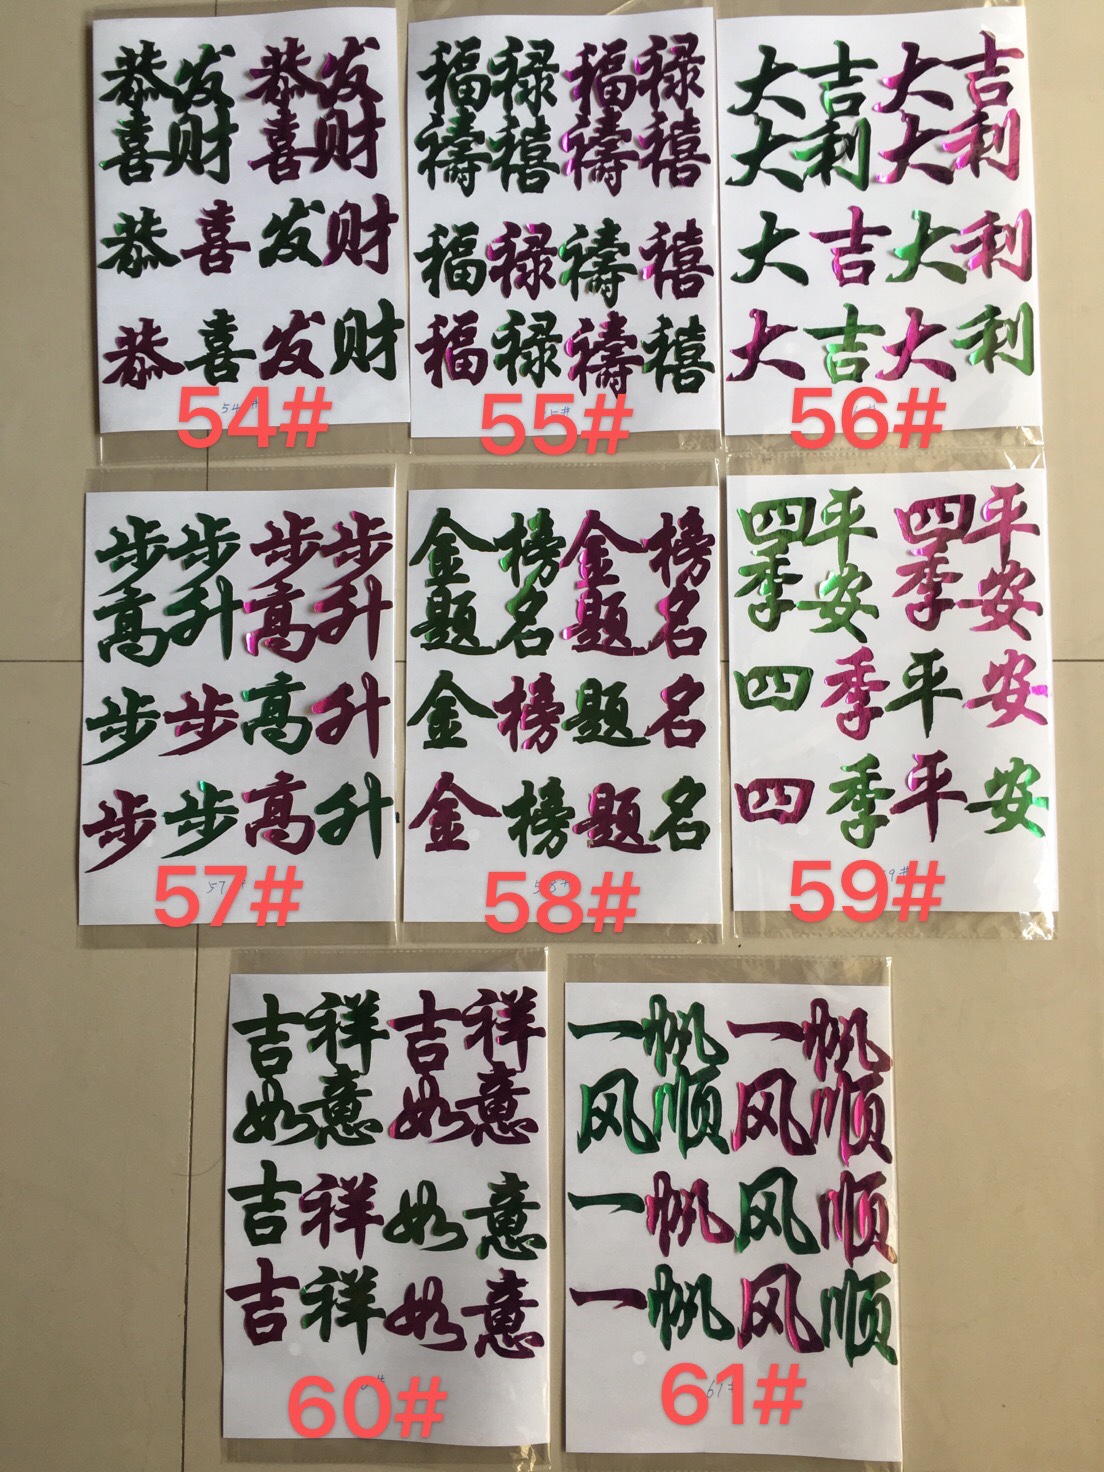 恭发 恭发
喜财 喜财
恭喜发财
恭喜发财
54#
福禄 福禄
禱禧 禱禧
福禄禱禧
福禄禱禧
55#
大吉 大吉
大利 大利
大吉大利
大吉大利
56#
步步 步步
高升 高升
步步高升
步步高升
57#
金榜 金榜
题名 题名
金榜题名
金榜题名
58#
四平 四平
季安 季安
四季平安
四季平安
59#
吉祥 吉祥
如意 如意
吉祥如意
吉祥如意
60#
一帆 一帆
风顺 风顺
一帆风顺
一帆风顺
61#